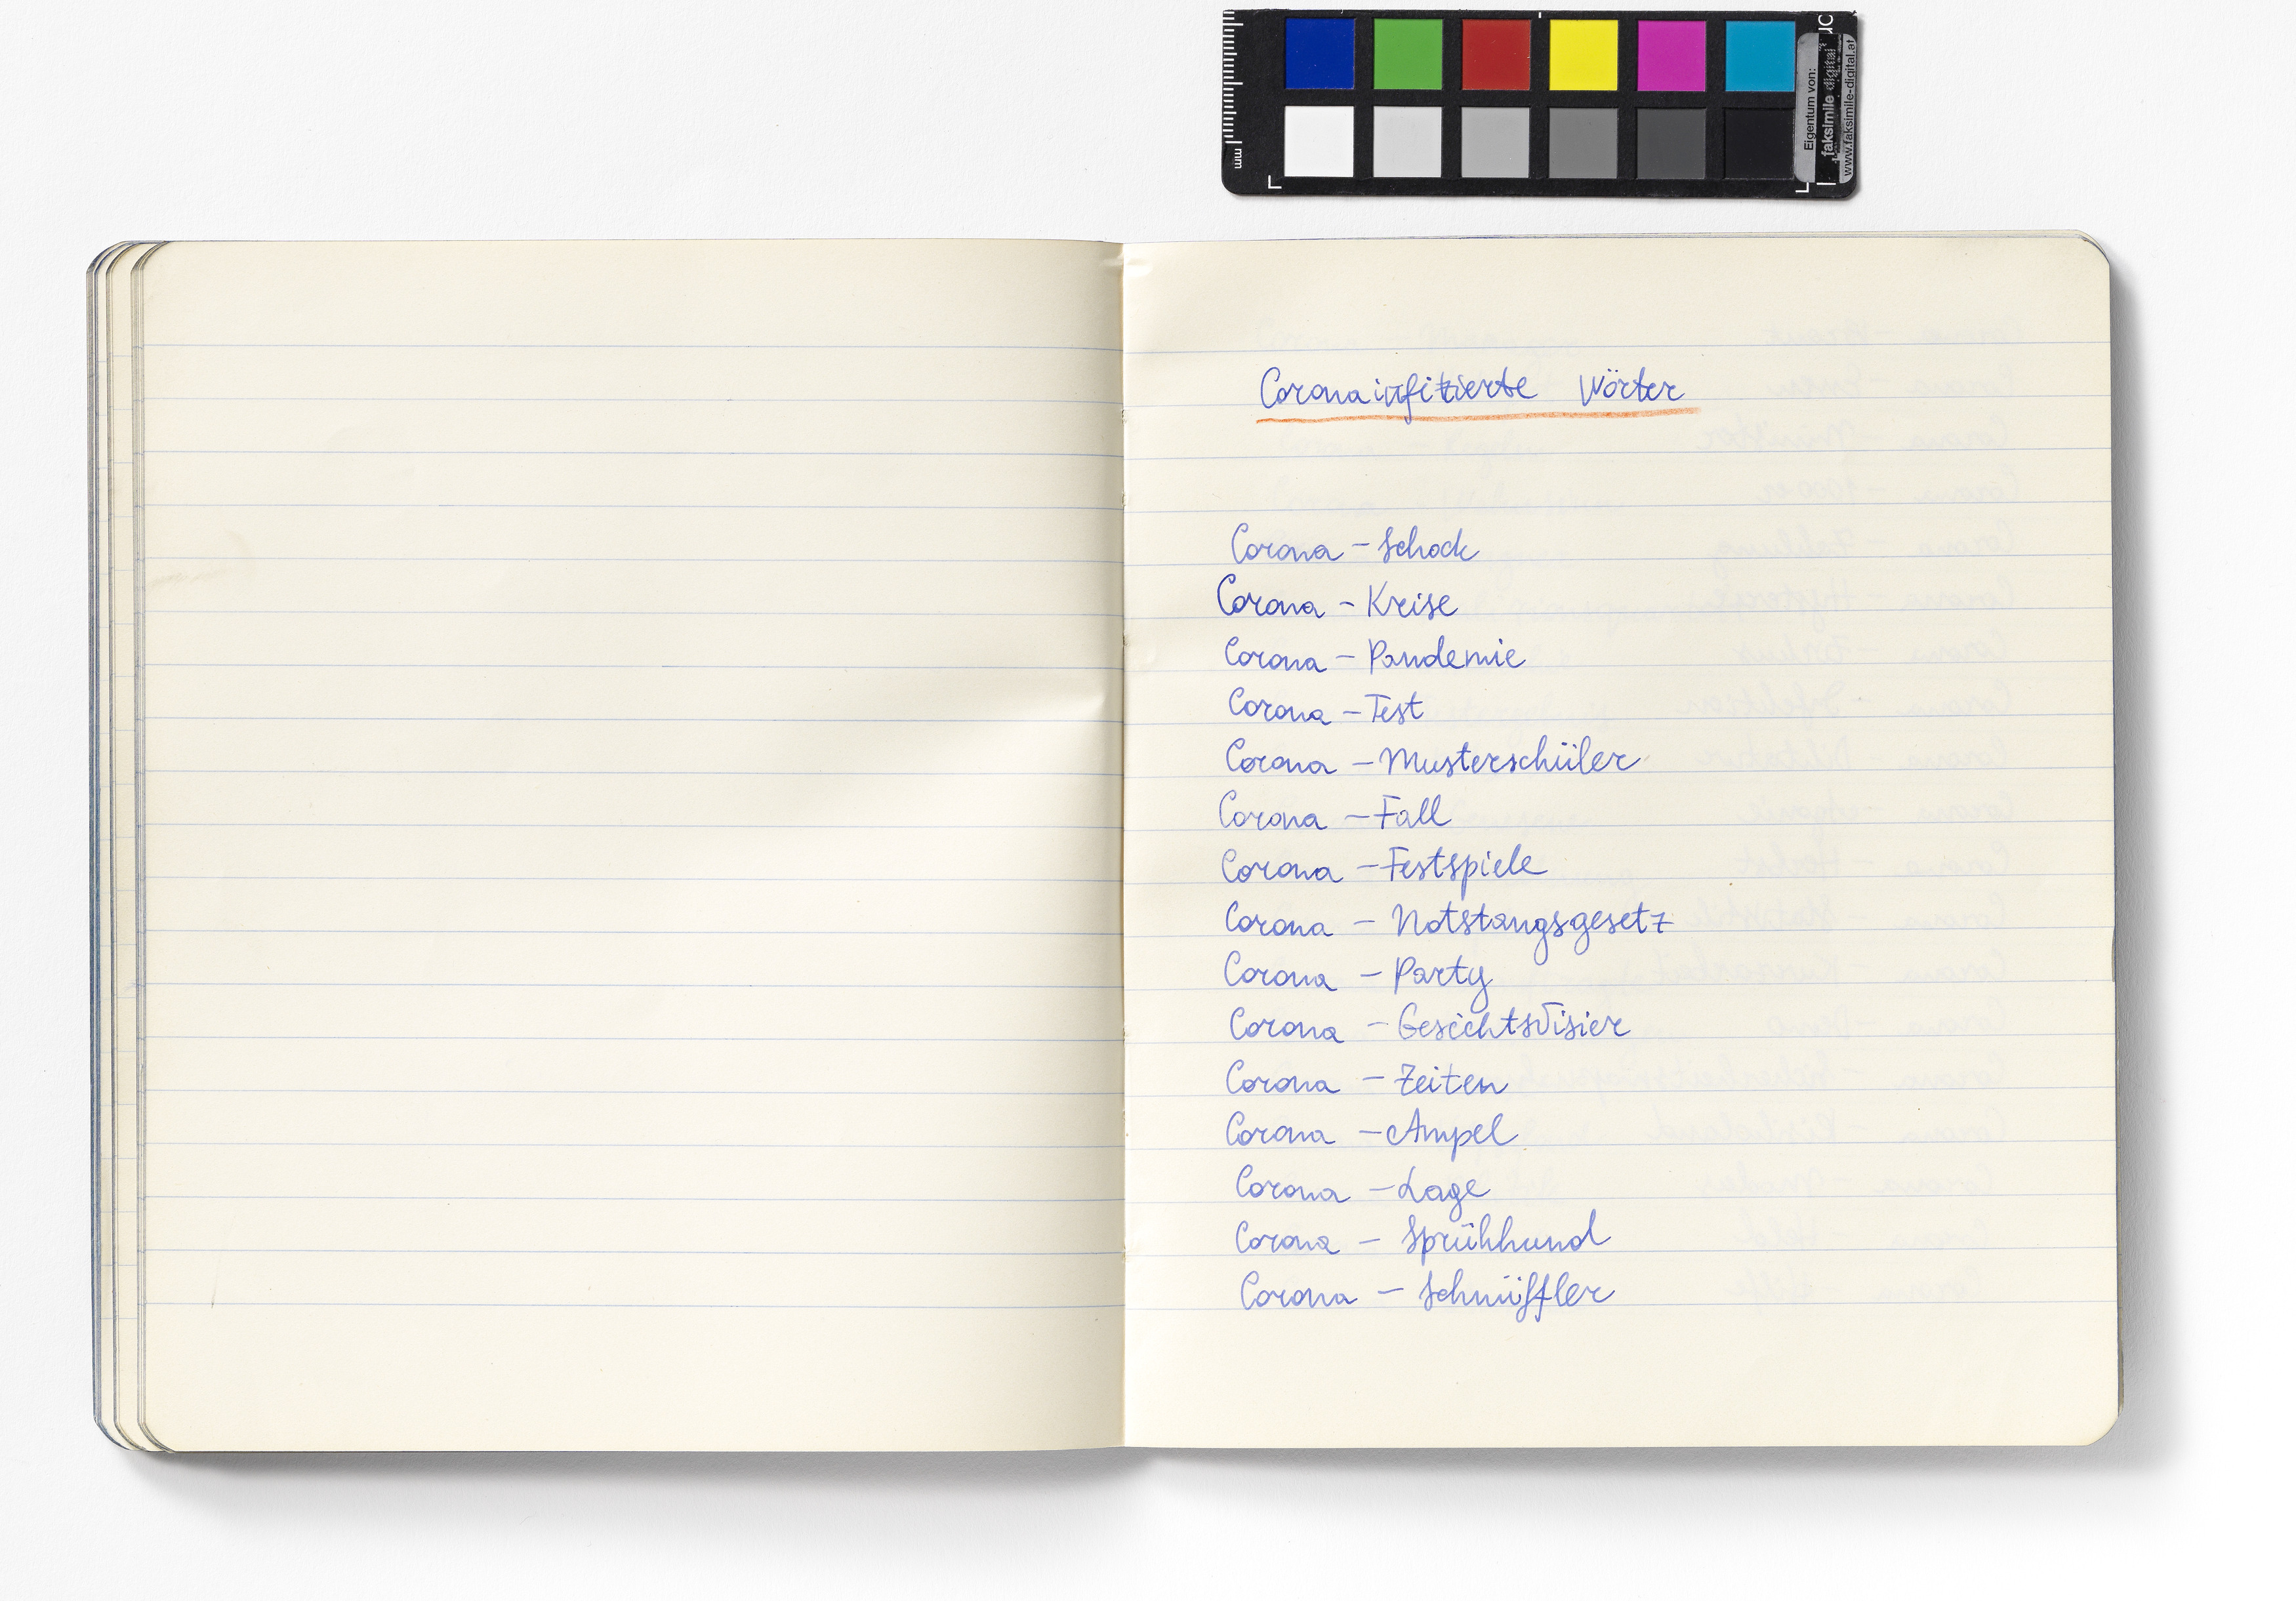 mm
Eigentum von:
faksimile digital
www.faksimile-digital.at
Coronainfizierte Wörter
Corona - Schock
Corona - Krise
Corona - Pandemie
Corona - Test
Corona - Musterschüler
Corona - Fall
Corona - Festspiele
Corona - Notstangsgesetz
Corona - Party
Corona - Gesichtsvisier
Corona - Zeiten
Corona - Ampel
Corona - Lage
Corona - Sprühhund
Corona - Schnüffler